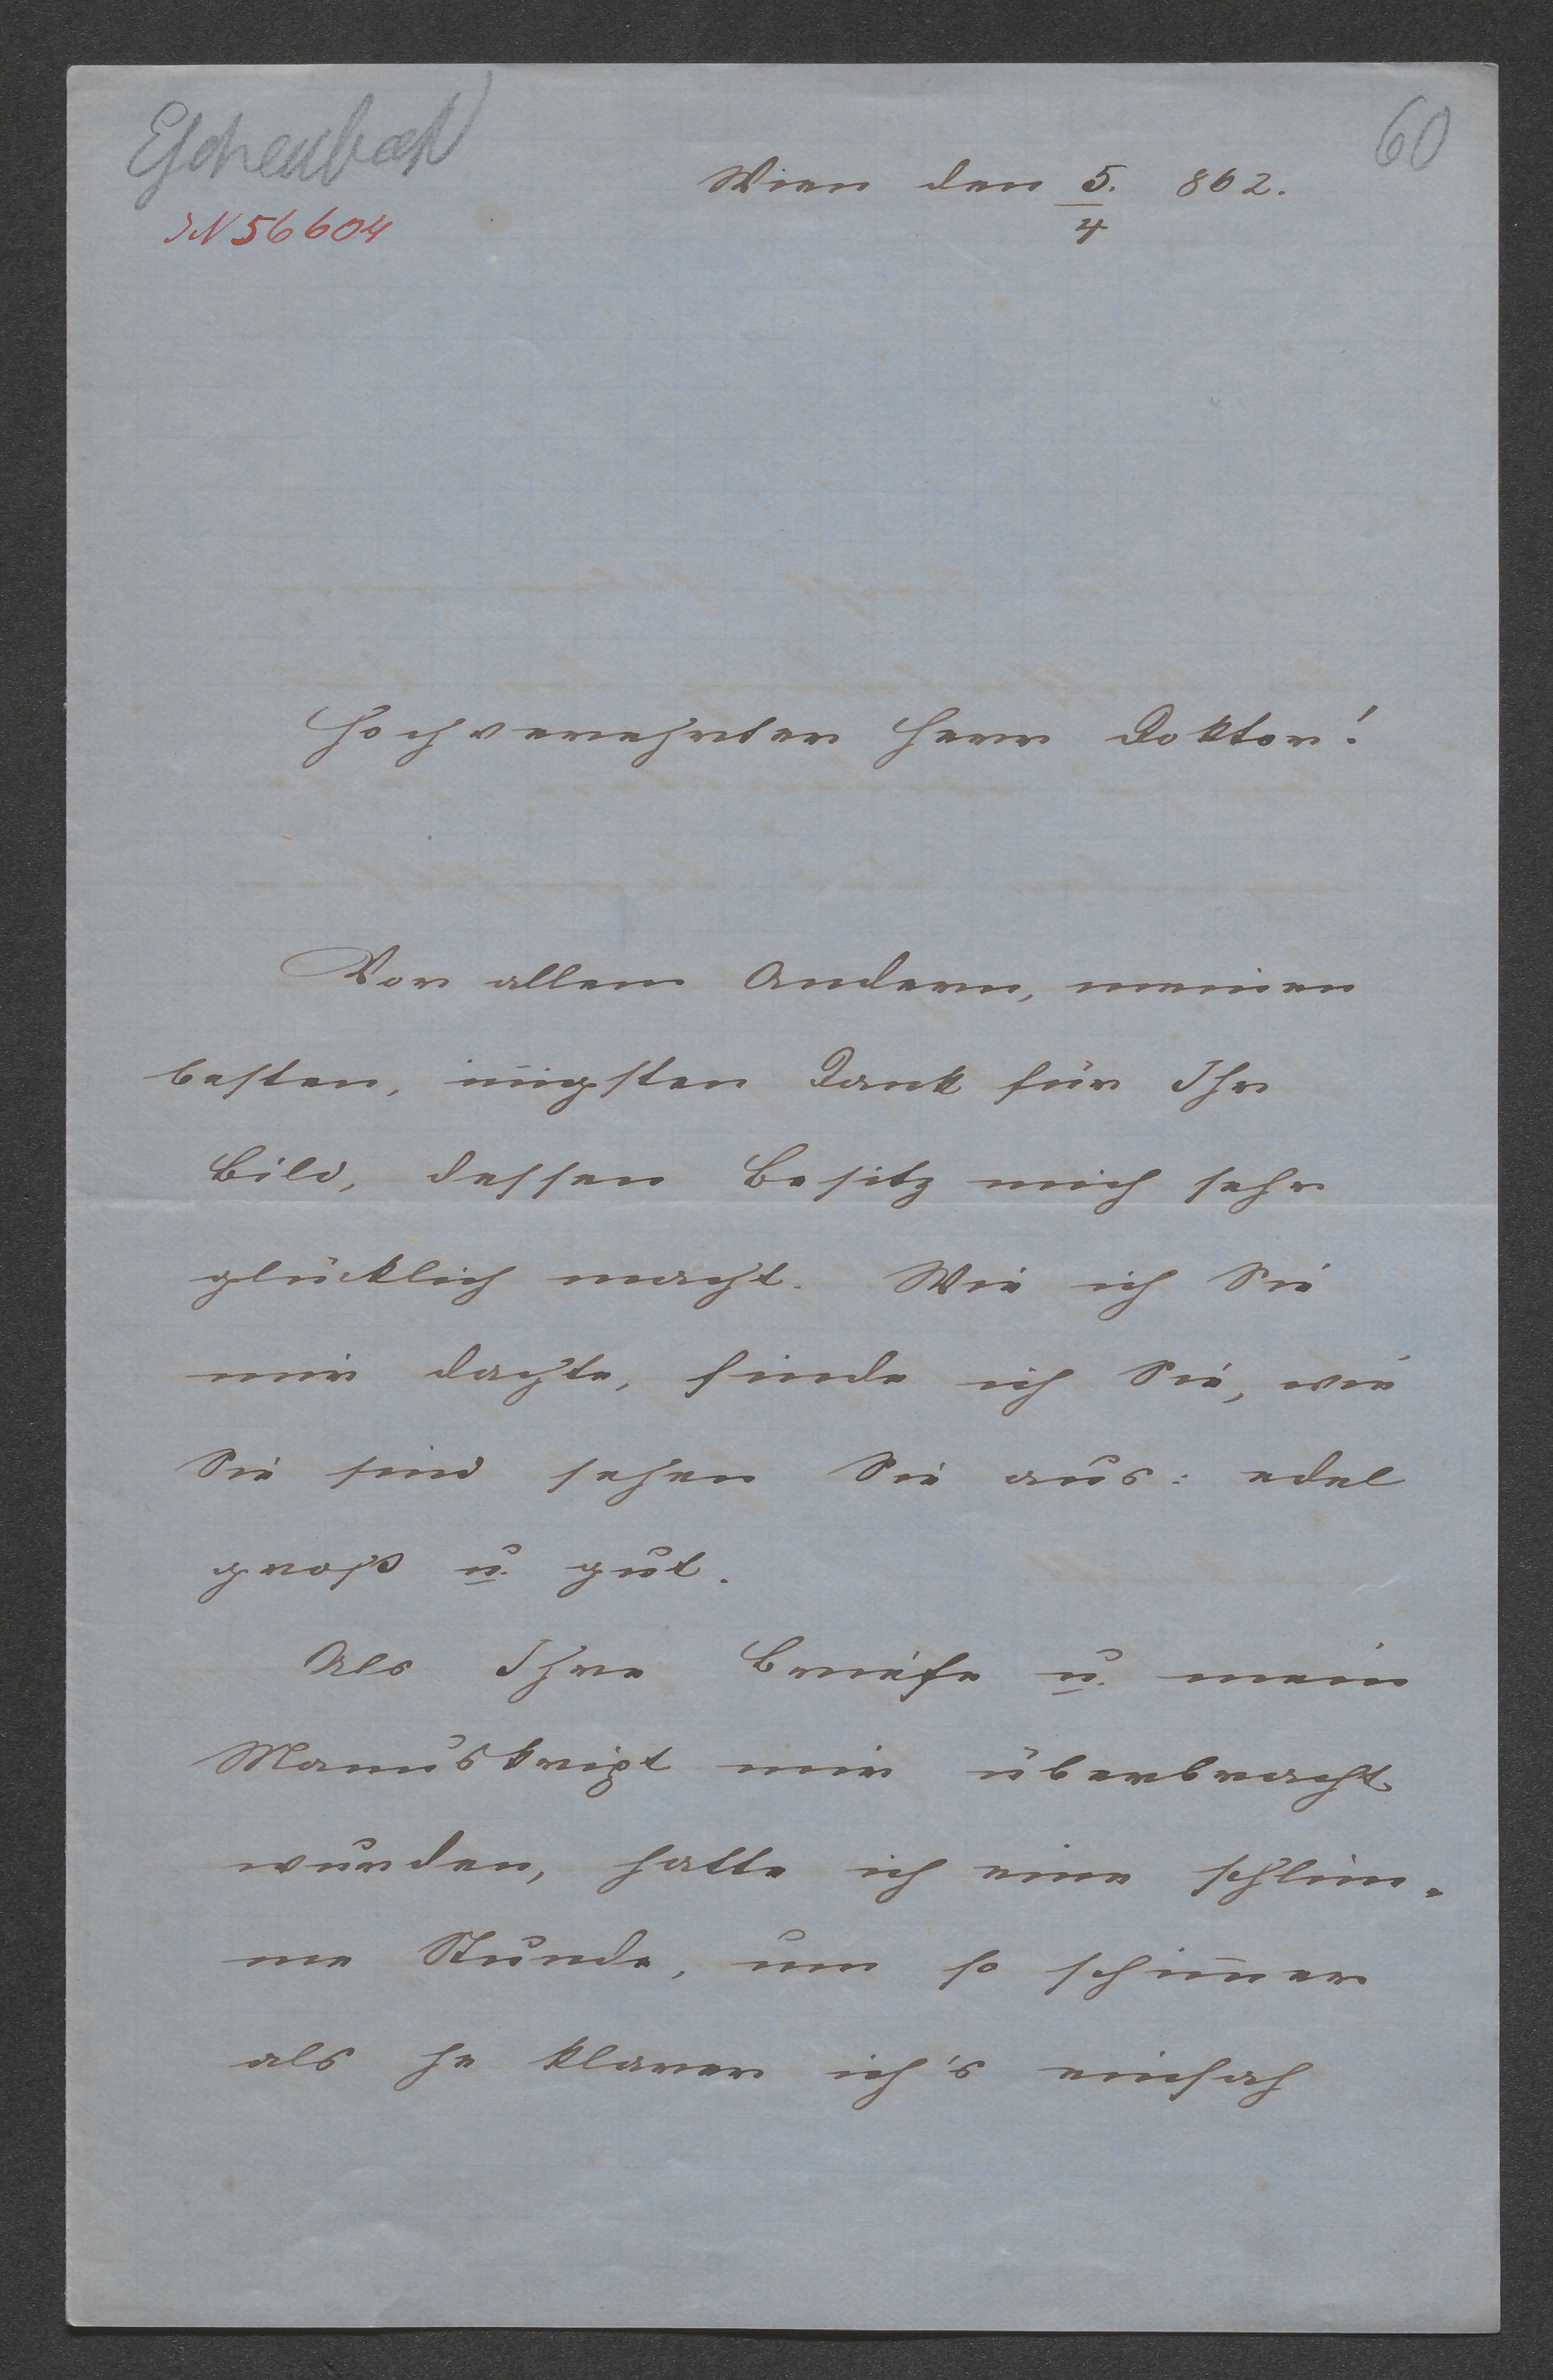 Eschenbach
60
IN 56604
Wien den 5. 862.
4
Hochverehrter Herr Doktor!
Vor allem Andern, meinen
besten, in̄igsten Dank für Ihr
Bild, dessen Besitz mich sehr
glücklich macht. Wie ich Sie
mir dachte, finde ich Sie, wie
Sie sind sehen Sie aus: edel
groß u. gut.
Als Ihre Briefe u. mein
Manuskript mir überbracht
wurden, hatte ich eine schlim-
me Stunde, um so schim̄er
als je klarer ich's einsah